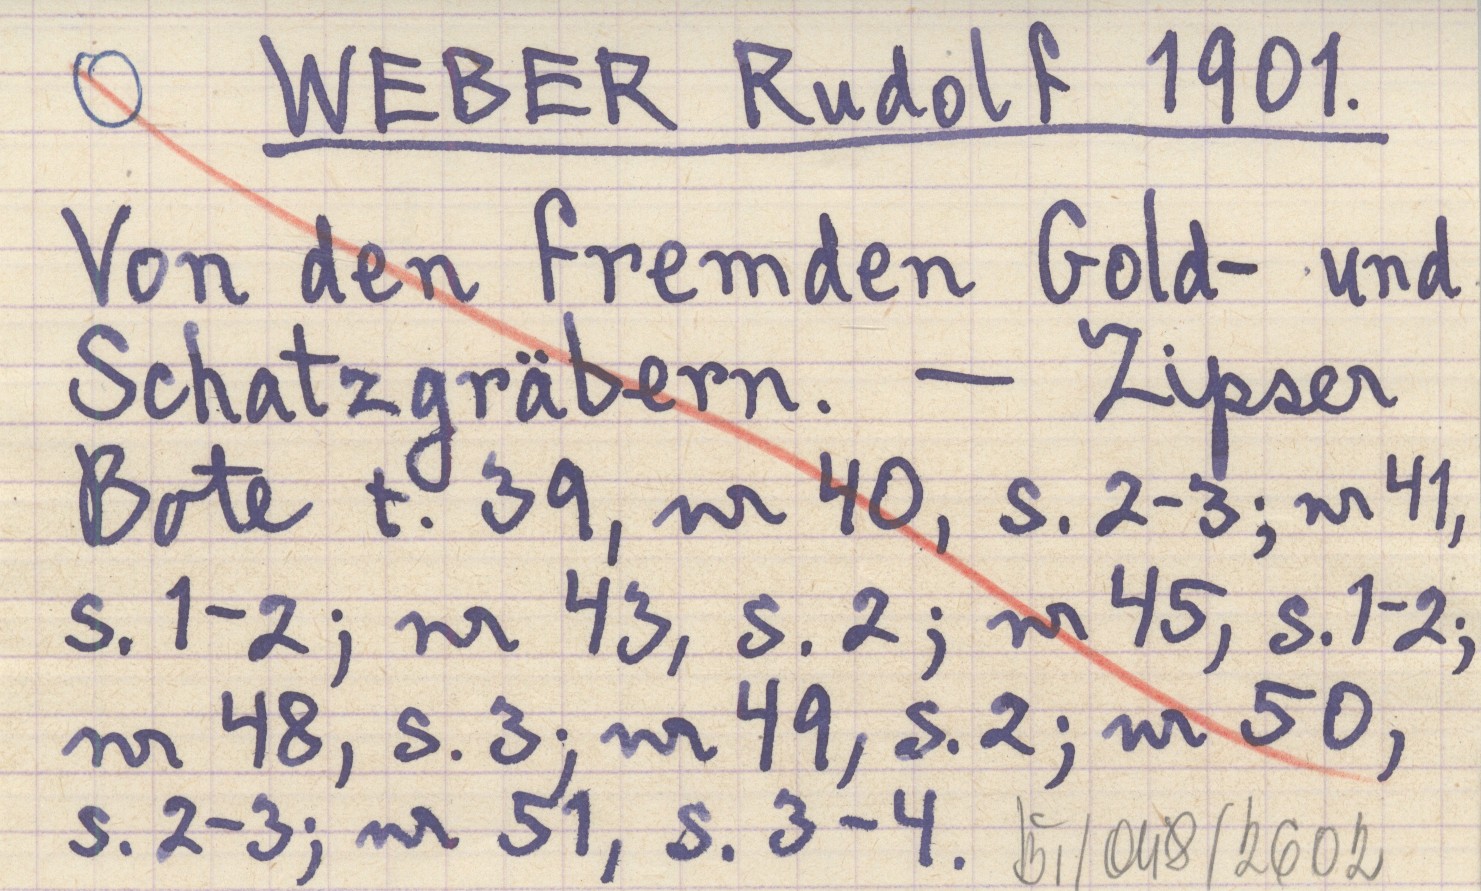 WEBER Rudolf 1901.
Von den fremden Gold- und
Schatzgräbern. — Zipser
Bote t. 39, nr 40, s. 2-3; nr 41,
s. 1-2; nr 43, s. 2; nr 45, s. 1-2;
nr 48, s. 3; nr 49, s. 2; nr 50,
s. 2-3; nr 51, s. 3-4.
/048/2602